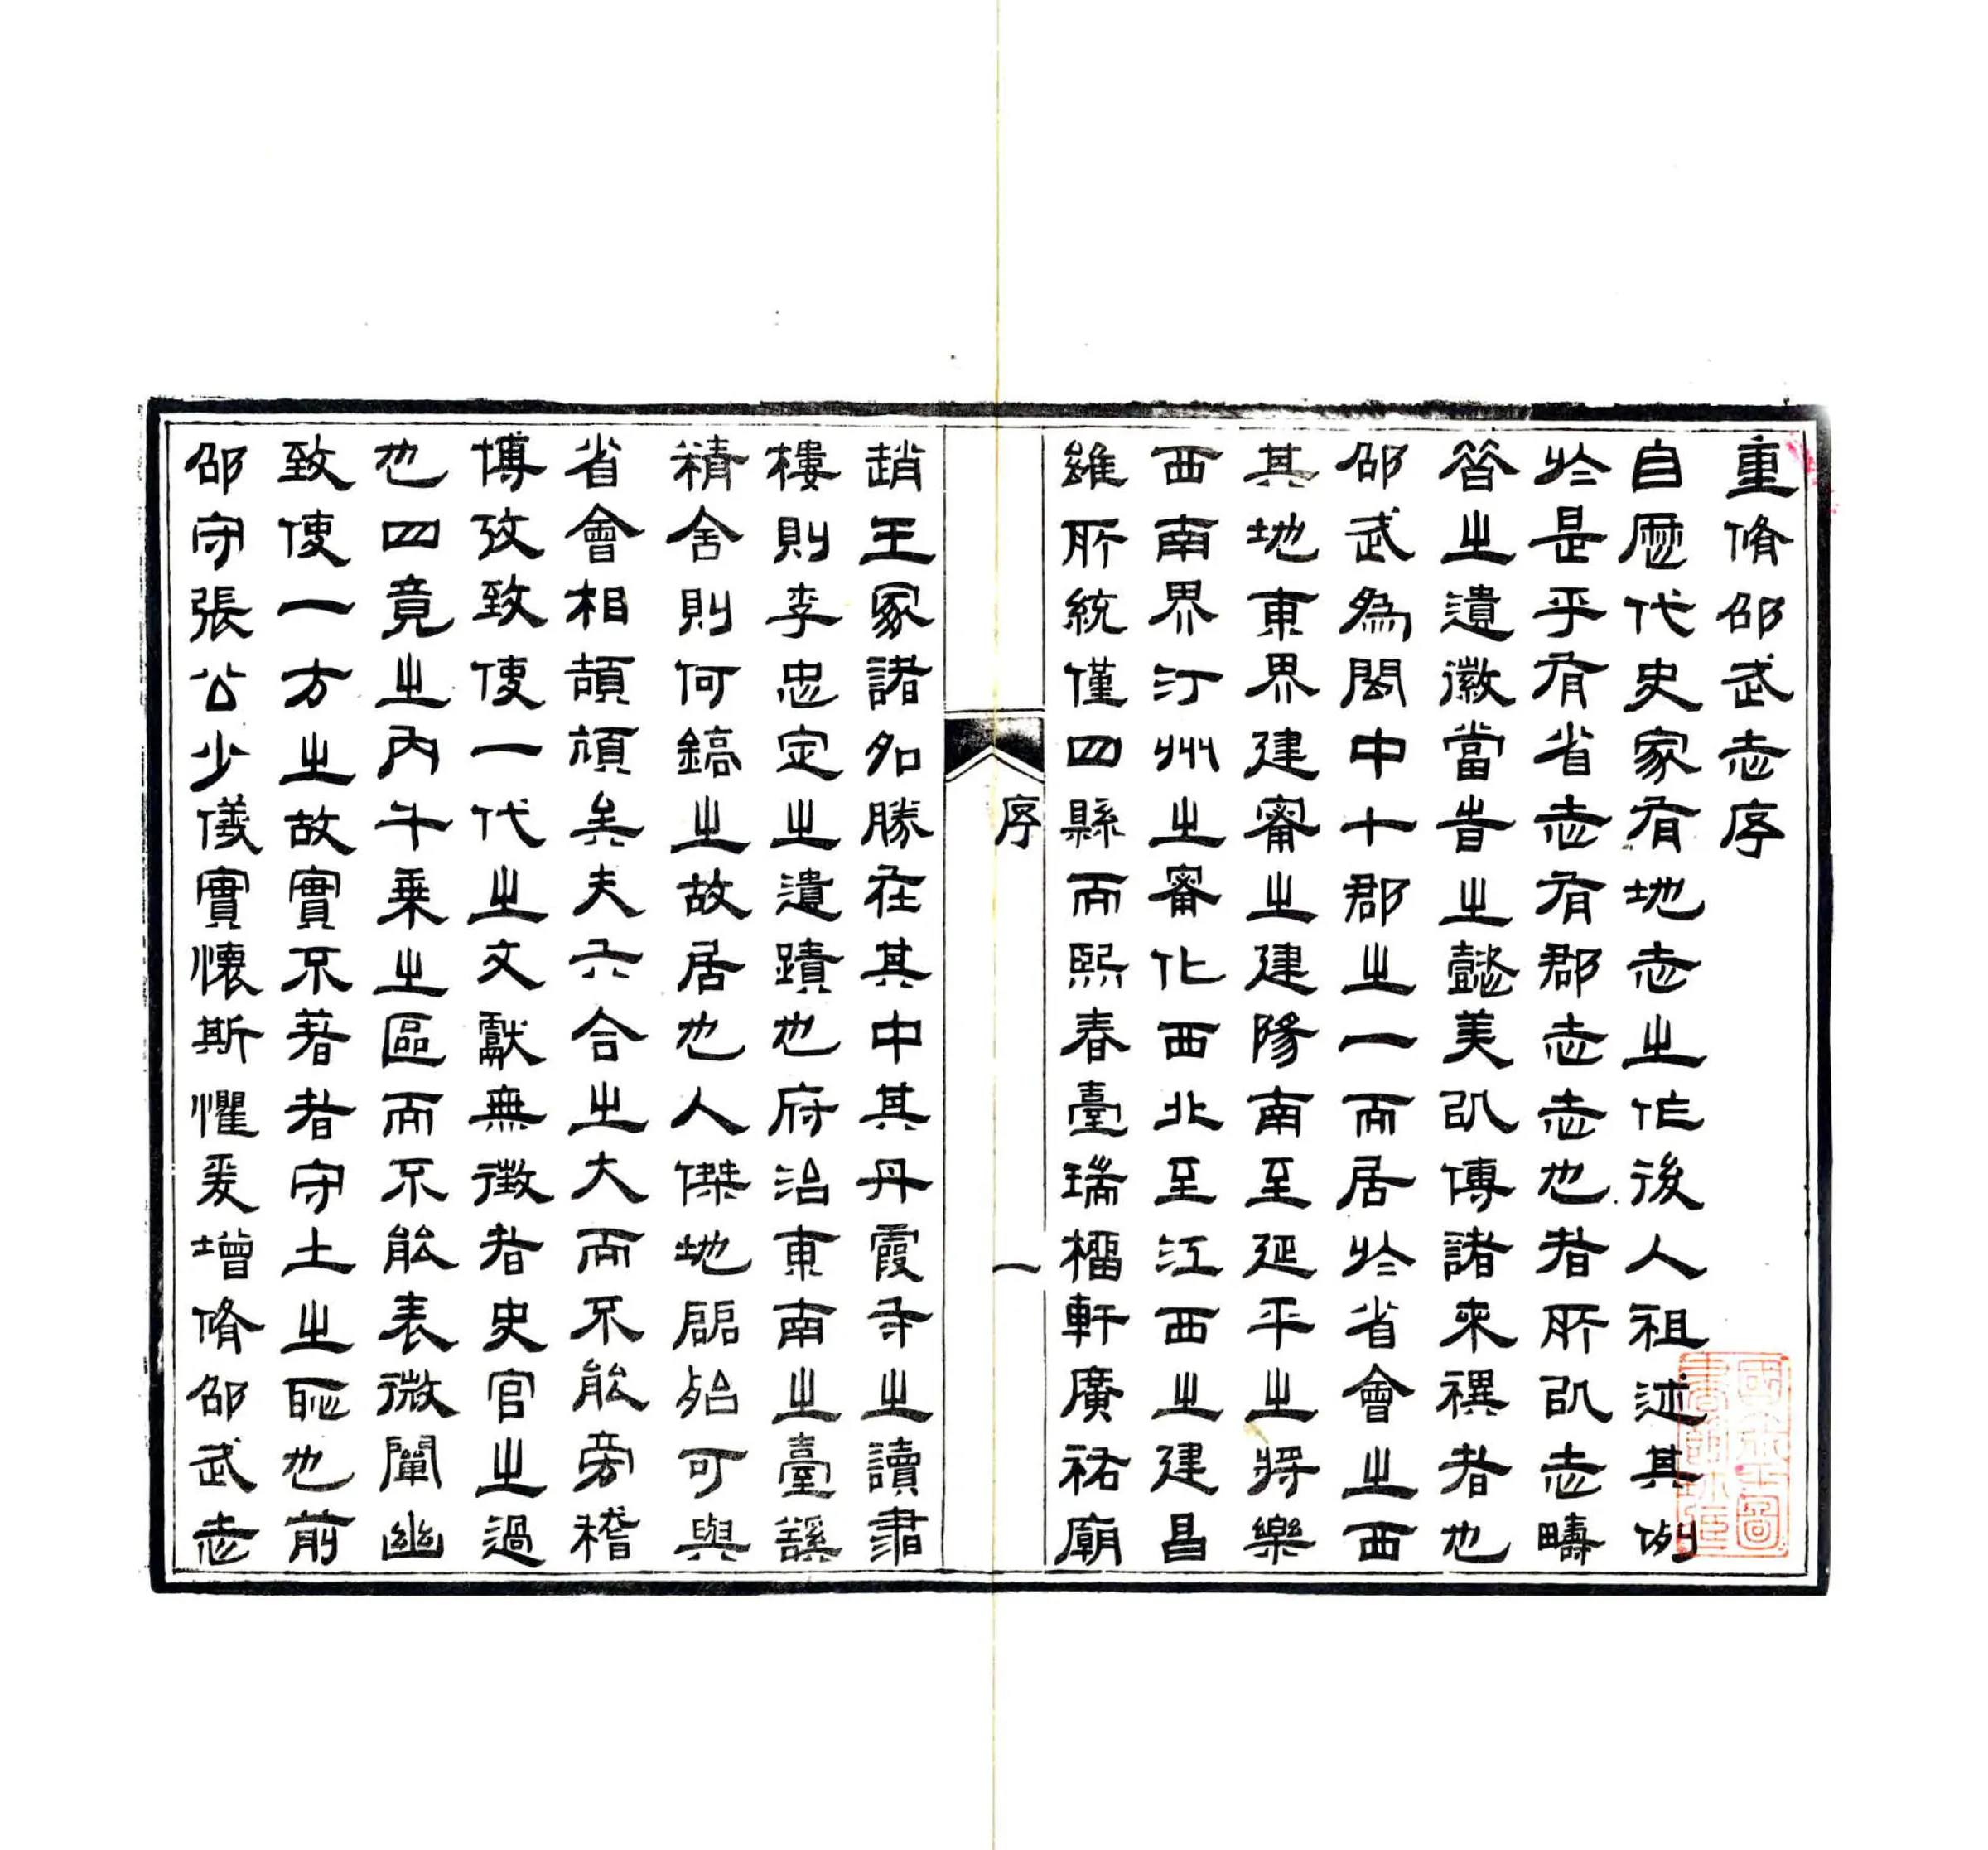 重脩邵武志序
自歷代史家有地志之作後人祖述其例
於是乎有省志有郡志志也者所以志疇
昝之遺徽當昔之懿美以傳諸來禩者也
邵武為閩中十郡之一而居於省會之西
其地東界建甯之建陽南至延平之將樂
西南界汀州之甯化西北至江西之建昌
雖所統僅四縣而熙春臺瑞榴軒廣祐廟
序
一
趙王冢諸名勝在其中其丹霞寺之讀書
樓則李忠定之遺蹟也府治東南之臺谿
精舍則何鎬之故居也人傑地靈殆可與
省會相頡頏矣夫六合之大而不能旁稽
博攷致使一代之文獻無徵者史官之過
也四竟之內千乘之區而不能表微闡幽
致使一方之故實不著者守土之恥也前
邵守張公少儀實懷斯懼爰增脩邵武志